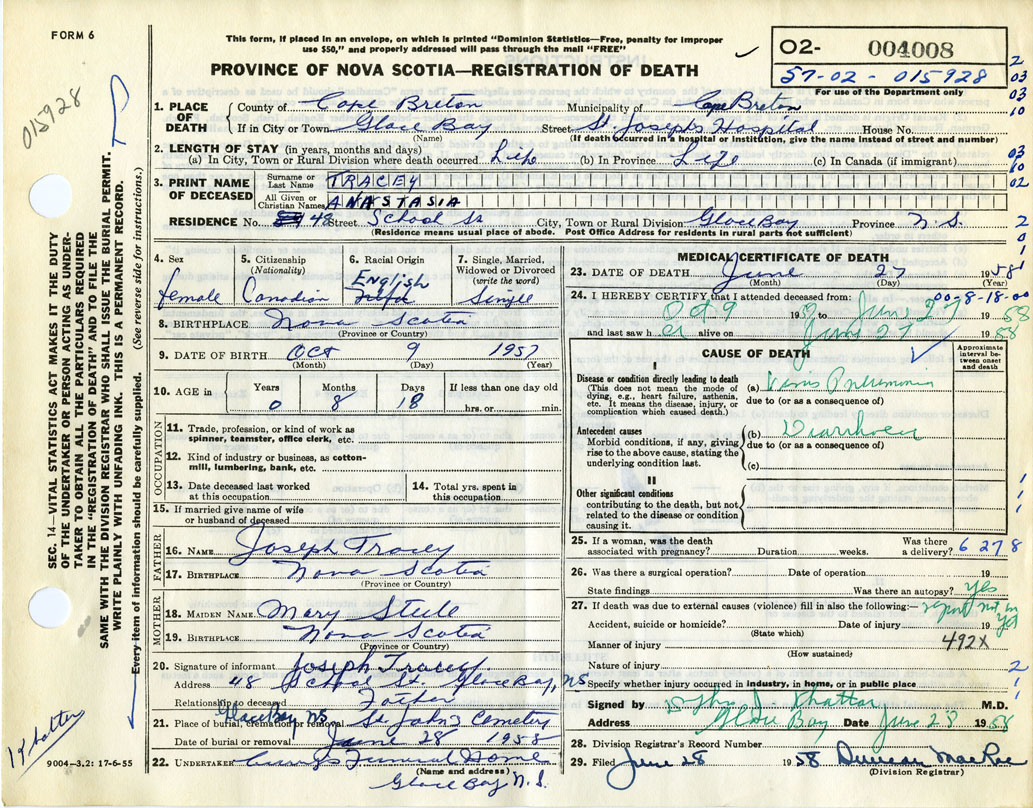 FORM 6
This form, if placed in an envelope, on which is printed "Dominion Statistics—Free, penalty for improper
use $50," and properly addressed will pass through the mail "FREE"
PROVINCE OF NOVA SCOTIA—REGISTRATION OF DEATH
O2- 004008
57-02-015928
For use of the Department only
015928
SEC. 14—VITAL STATISTICS ACT MAKES IT THE DUTY
OF THE UNDERTAKER OR PERSON ACTING AS UNDER-
TAKER TO OBTAIN ALL THE PARTICULARS REQUIRED
IN THE "REGISTRATION OF DEATH" AND TO FILE THE
SAME WITH THE DIVISION REGISTRAR WHO SHALL ISSUE THE BURIAL PERMIT.
WRITE PLAINLY WITH UNFADING INK. THIS IS A PERMANENT RECORD.
Every item of information should be carefully supplied. (See reverse side for instructions.)
1. PLACE OF DEATH
County of Cape Breton Municipality of Cape Breton
If in City or Town Glace Bay Street St. Joseph's Hospital House No.
(Name) (If death occurred in a hospital or institution, give the name instead of street and number)
2. LENGTH OF STAY (in years, months and days)
(a) In City, Town or Rural Division where death occurred Life (b) In Province Life (c) In Canada (if immigrant)
3. PRINT NAME OF DECEASED
Surname or Last Name TRACEY
All Given or Christian Names ANASTASIA
RESIDENCE No. 48 Street School St City, Town or Rural Division Glace Bay Province N.S.
(Residence means usual place of abode. Post Office Address for residents in rural parts not sufficient)
4. Sex 5. Citizenship (Nationality) 6. Racial Origin 7. Single, Married, Widowed or Divorced (write the word)
female Canadian English Single
8. BIRTHPLACE Nova Scotia
(Province or Country)
9. DATE OF BIRTH Oct 9 1957
(Month) (Day) (Year)
10. AGE in Years Months Days If less than one day old
0 8 18 hrs. or min.
OCCUPATION
11. Trade, profession, or kind of work as
spinner, teamster, office clerk, etc.
12. Kind of industry or business, as cotton-
mill, lumbering, bank, etc.
13. Date deceased last worked
at this occupation
14. Total yrs. spent in
this occupation
15. If married give name of wife
or husband of deceased
FATHER
16. NAME Joseph Tracey
17. BIRTHPLACE Nova Scotia
(Province or Country)
MOTHER
18. MAIDEN NAME Mary Steele
19. BIRTHPLACE Nova Scotia
(Province or Country)
20. Signature of informant Joseph Tracey
Address 48 School St. Glace Bay, NS
Relationship to deceased Father
21. Place of burial, cremation or removal Glace Bay NS St John's Cemetery
Date of burial or removal June 28 1958
22. UNDERTAKER Funeral Home
(Name and address) Glace Bay N.S.
9004—3.2: 17-6-55
MEDICAL CERTIFICATE OF DEATH
23. DATE OF DEATH June 27 1958
(Month) (Day) (Year)
00-8-18-00
24. I HEREBY CERTIFY that I attended deceased from:
Oct 9 19 to June 27 1958
and last saw her alive on June 27 1958
CAUSE OF DEATH
Approximate interval between onset and death
I
Disease or condition directly leading to death
(This does not mean the mode of
dying, e.g., heart failure, asthenia,
etc. It means the disease, injury, or
complication which caused death.)
(a) Virus Pneumonia
due to (or as a consequence of)
Antecedent causes
Morbid conditions, if any, giving
rise to the above cause, stating the
underlying condition last.
(b) Diarrhoea
due to (or as a consequence of)
(c)
II
Other significant conditions
contributing to the death, but not
related to the disease or condition
causing it.
25. If a woman, was the death
associated with pregnancy? Duration weeks. Was there
a delivery? 6 27 8
26. Was there a surgical operation? Date of operation 19
State findings Was there an autopsy? Yes
27. If death was due to external causes (violence) fill in also the following:— report not in
Accident, suicide or homicide? Date of injury 19 yet
(State which)
Manner of injury 492X
(How sustained)
Nature of injury
Specify whether injury occurred in industry, in home, or in public place
Signed by Khattar M.D.
Address Glace Bay Date June 28 1958
28. Division Registrar's Record Number
29. Filed June 28 1958 Duncan MacRae
(Division Registrar)
2
03
03
10
03
10
02
2
0
1
1
1
2
1
1